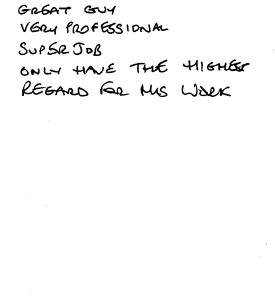 GREAT GUY
VERY PROFESSIONAL
SUPER JOB
ONLY HAVE THE HIGHEST
REGARD FOR HIS WORK